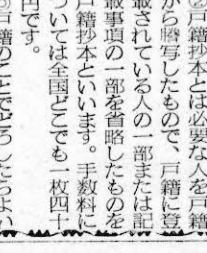 ②戸籍抄本とは必要な人を戸籍
から謄写したもので、戸籍に登
載されている人の一部または記
載事項の一部を省略したものを
戸籍抄本といいます。手数料に
ついては全国どこでも一枚四十
円です。
戸籍のことでどうしたらよい